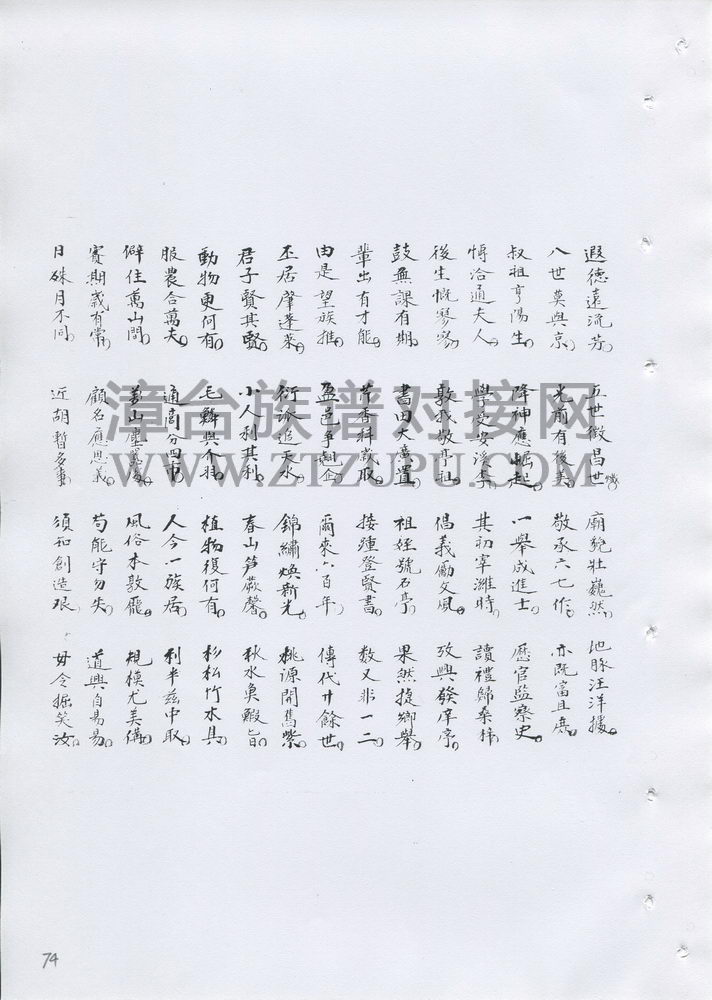 遐德遠流芳。五世徵昌世熾。廟貌壯巍然。地脉汪洋據。
八世莫與京。光前有後美。敬承六七作。亦既富且庶。
叔祖亨陽生。降神應崛起。一舉成進士。歷官監察史。
博洽通夫人。學受安溪李。其初宰濰時。讀禮歸桑梓。
後生慨寥寥。敦我敬亭祉。倡義勵文風。攷興發庠序。
鼓無課有期。書田大廣置。祖姪號石亭。果然捷鄉舉。
輩出有才能。芹香科歲取。接踵登賢書。數又非一二
由是望族推。盈邑爭翹企。爾來六百年。傳代廿餘世。
丕居肇蓬萊。衍派追天水。錦繡煥新光。桃源開舊紫。
君子賢其賢。小人利其利。春山筍蕨馨。秋水魚鰕旨。
動物更何有。毛鱗與介羽。植物復何有。杉松竹木具。
服農合萬夫。通商分四市。人今一族居。利半茲中取。
僻住萬山間。風俗本敦龐。規模尤美備。
賓期歲有常。顧名應思義。苟能守勿失。道興自易易。
日殊月不同。近胡暫多事。須知創造艱。毋令掘笑汝。
漳台族谱对接网
WWW.ZTZUPU.COM
74